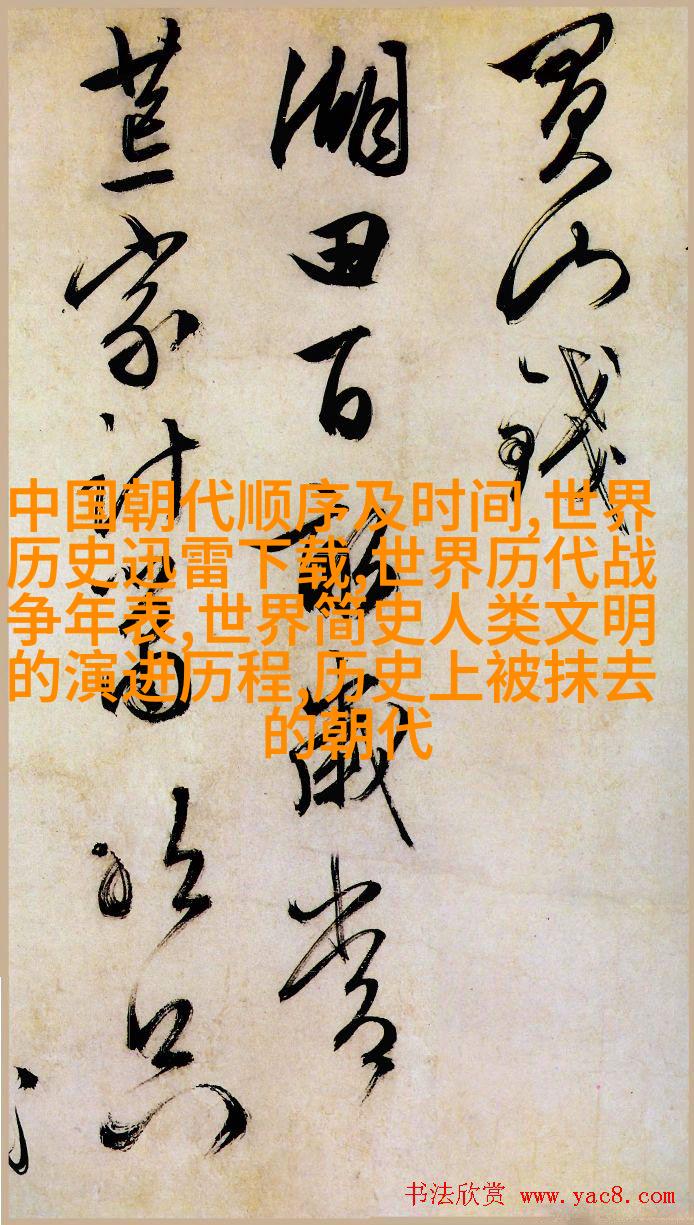 買山錢
湖田百畝歲常
荒家計只
中国朝代顺序及时间,世界
历史迅雷下载,世界历代战
争年表,世界简史人类文明
的演进历程,历史上被抹去
的朝代
书法欣赏 www.yac8.com